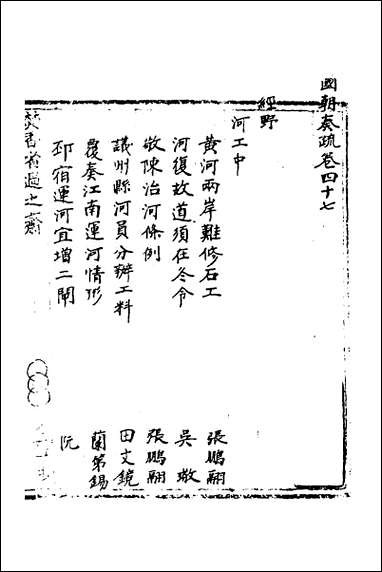 國朝奏疏卷四十七
經野
河工中
黃河兩岸難修石工 張鵬翮
河復故道須在冬令 吳璥
敬陳治河條例 張鵬翮
議州縣河員分辦工料 田文鏡
覆奏江南運河情形 蘭第錫
邳宿運河宜增二閘 阮
之齋